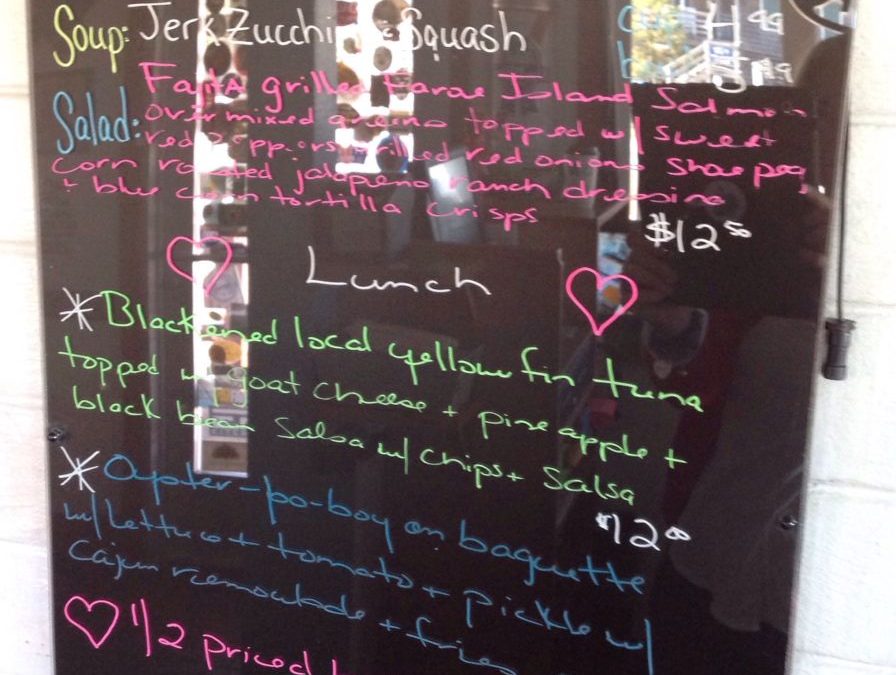 Soup: Jerk Zucchini + Squash
Cup 4.99
b 5.99
Salad: Fajita grilled Faroe Island Salmon
over mixed greens topped w/ sweet
red peppers grilled red onions shoepeg
corn roasted jalapeno ranch dressing
+ blue corn tortilla crisps
$12.50
Lunch
* Blackened local yellowfin tuna
topped w/ goat cheese + pineapple +
black bean Salsa w/ chips + Salsa
$12.00
* Oyster-po-boy on baguette
w/ lettuce + tomato + pickle w/
Cajun remoulade + fries
1/2 priced